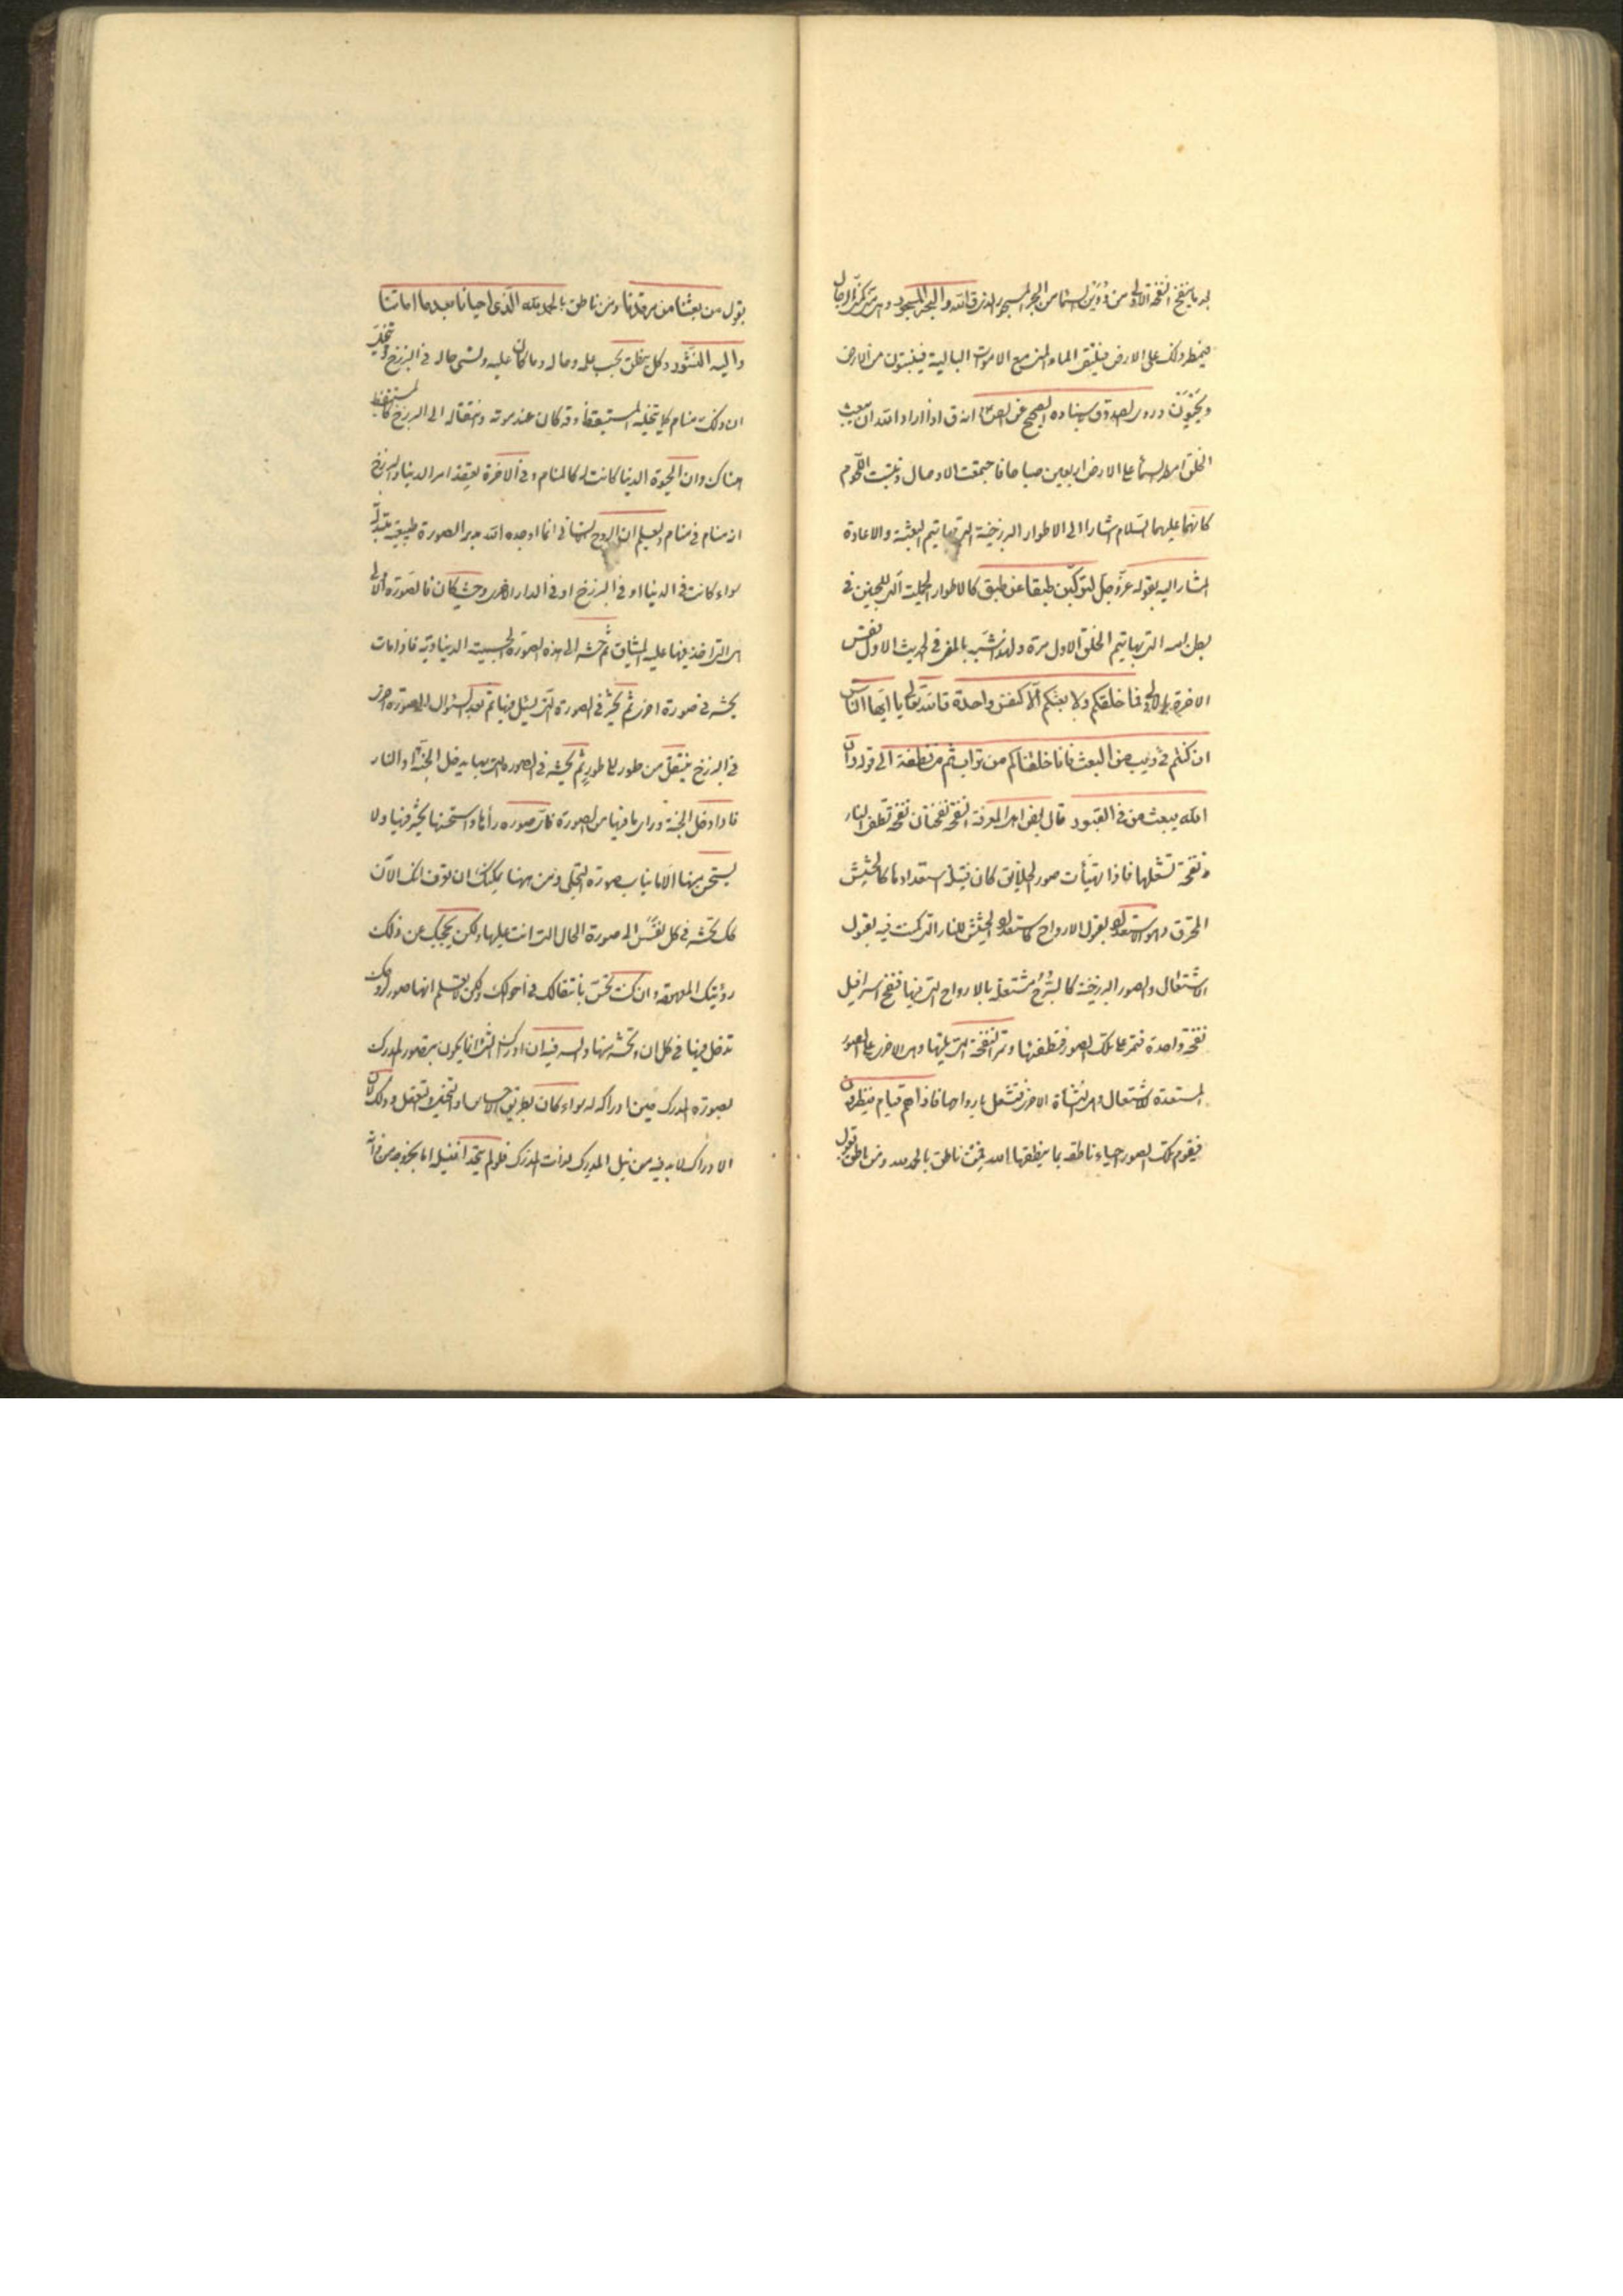 من البحر المسجور الذي قال الله والبحر المسجور
فيمطر ذلك على الارض فيلتقى الماء المنى مع الاموات البالية فينبتون من الارض
ويحيون وروى الصدوق باسناده الصحيح عن الصادق انه ق اذا اراد الله ان يبعث
الخلق امطر السماء على الارض اربعين صباحا فاجتمعت الاوصال ونبتت اللحوم
كانهما عليهما السلام اشارا الى الاطوار البرزخية التى بها يتم البعثة والاعادة
المشار اليه بقوله عز وجل لتركبن طبقا عن طبق كالاطوار الجبلية التى للجنين فى
بطن امه التى بها يتم الخلق الاول مرة ولهذا شبه بالمنى فى الحديث الاول نفس
الاخرة بالاولى فما خلقكم ولا بعثكم الا كنفس واحدة قال الله تعالى يا ايها الناس
ان كنتم فى ريب من البعث فانا خلقناكم من تراب ثم من نطفة الى قوله وان
الله يبعث من فى القبور قال بعض اهل المعرفة النفخة نفختان نفخة تطفى النار
ونفخة تشعلها فاذا تهيأت صور الخلايق كان فتيلة استعدادها كالحشيش
المحترق وهو الاستعداد لقبول الارواح كاستعداد الحشيش للنار التى كمنت فيه لقبول
الاشتعال والصور البرزخية كالسرج مشتعلة بالارواح التى فيها فينفخ اسرافيل
نفخة واحدة فتمر على تلك الصور فتطفئها وتمر النفخة التى تليها وهى الاخرى على الصور
المستعدة للاشتعال وهى النشأة الاخرى فتشتعل بارواحها فاذا هم قيام ينظرون
فيقوم تلك الصور احياء ناطقة بما ينطقها الله فمن ناطق بالحمد لله ومن ناطق يقول
يقول من بعثنا من مرقدنا ومن ناطق بالحمد لله الذى احيانا بعد ما اماتنا
واليه النشور وكل ينطق بحسب علمه وحاله وما كان عليه ونسى حاله فى البرزخ ويتخيل
ان ذلك منام كما تخيله المستيقظ وقد كان عند موته وانتقاله الى البرزخ كالمستيقظ
هناك وان الحيوة الدنيا كانت له كالمنام وفى الاخرة يعتقد امر الدنيا والبرزخ
انه منام فى منام وليعلم ان الروح الانسانى انما اوجده الله مدبر الصورة طبيعية
سواء كانت فى الدنيا او فى البرزخ او فى الدار الاخرى وحيث كان فالصورة الاولى
هى التى اخذ فيها عليه الميثاق ثم حشر الى هذه الصورة الجسمية الدنياوية فاذا مات
يحشر فى صورة اخرى ثم يحشر فى الصورة التى يسئل فيها ثم بعد السئوال الى صورة اخرى
فى البرزخ فينتقل من طور الى طور ثم يحشر فى الصورة التى بها يدخل الجنة او النار
فاذا دخل الجنة وراى ما فيها من الصورة فاى صورة رأها واستحسنها يحشر فيها ولا
يستحسن منها الا ما يناسب صورة التجلى ومن ههنا يمكنك ان تعرف انك الآن
تحشر فى كل نفس الى صورة الحال التى انت عليها ولكن يحجبك عن ذلك
رؤيتك المعهودة وان كنت تحس بانتقالك فى احوالك ولكن لا تعلم انها صور روحك
تدخل فيها فى كل ان وتحشر منها والسر فيه ان ادراك الشئ انما يكون بتصور المدرك
بصورة المدرك حين ادراكه له سواء كان بطريق الاحساس او التخيل او التعقل وذلك لان
الادراك لا بد فيه من نيل المدرك لذات المدرك فلو لم يتحد فنيله اما بخروجه من ذاته